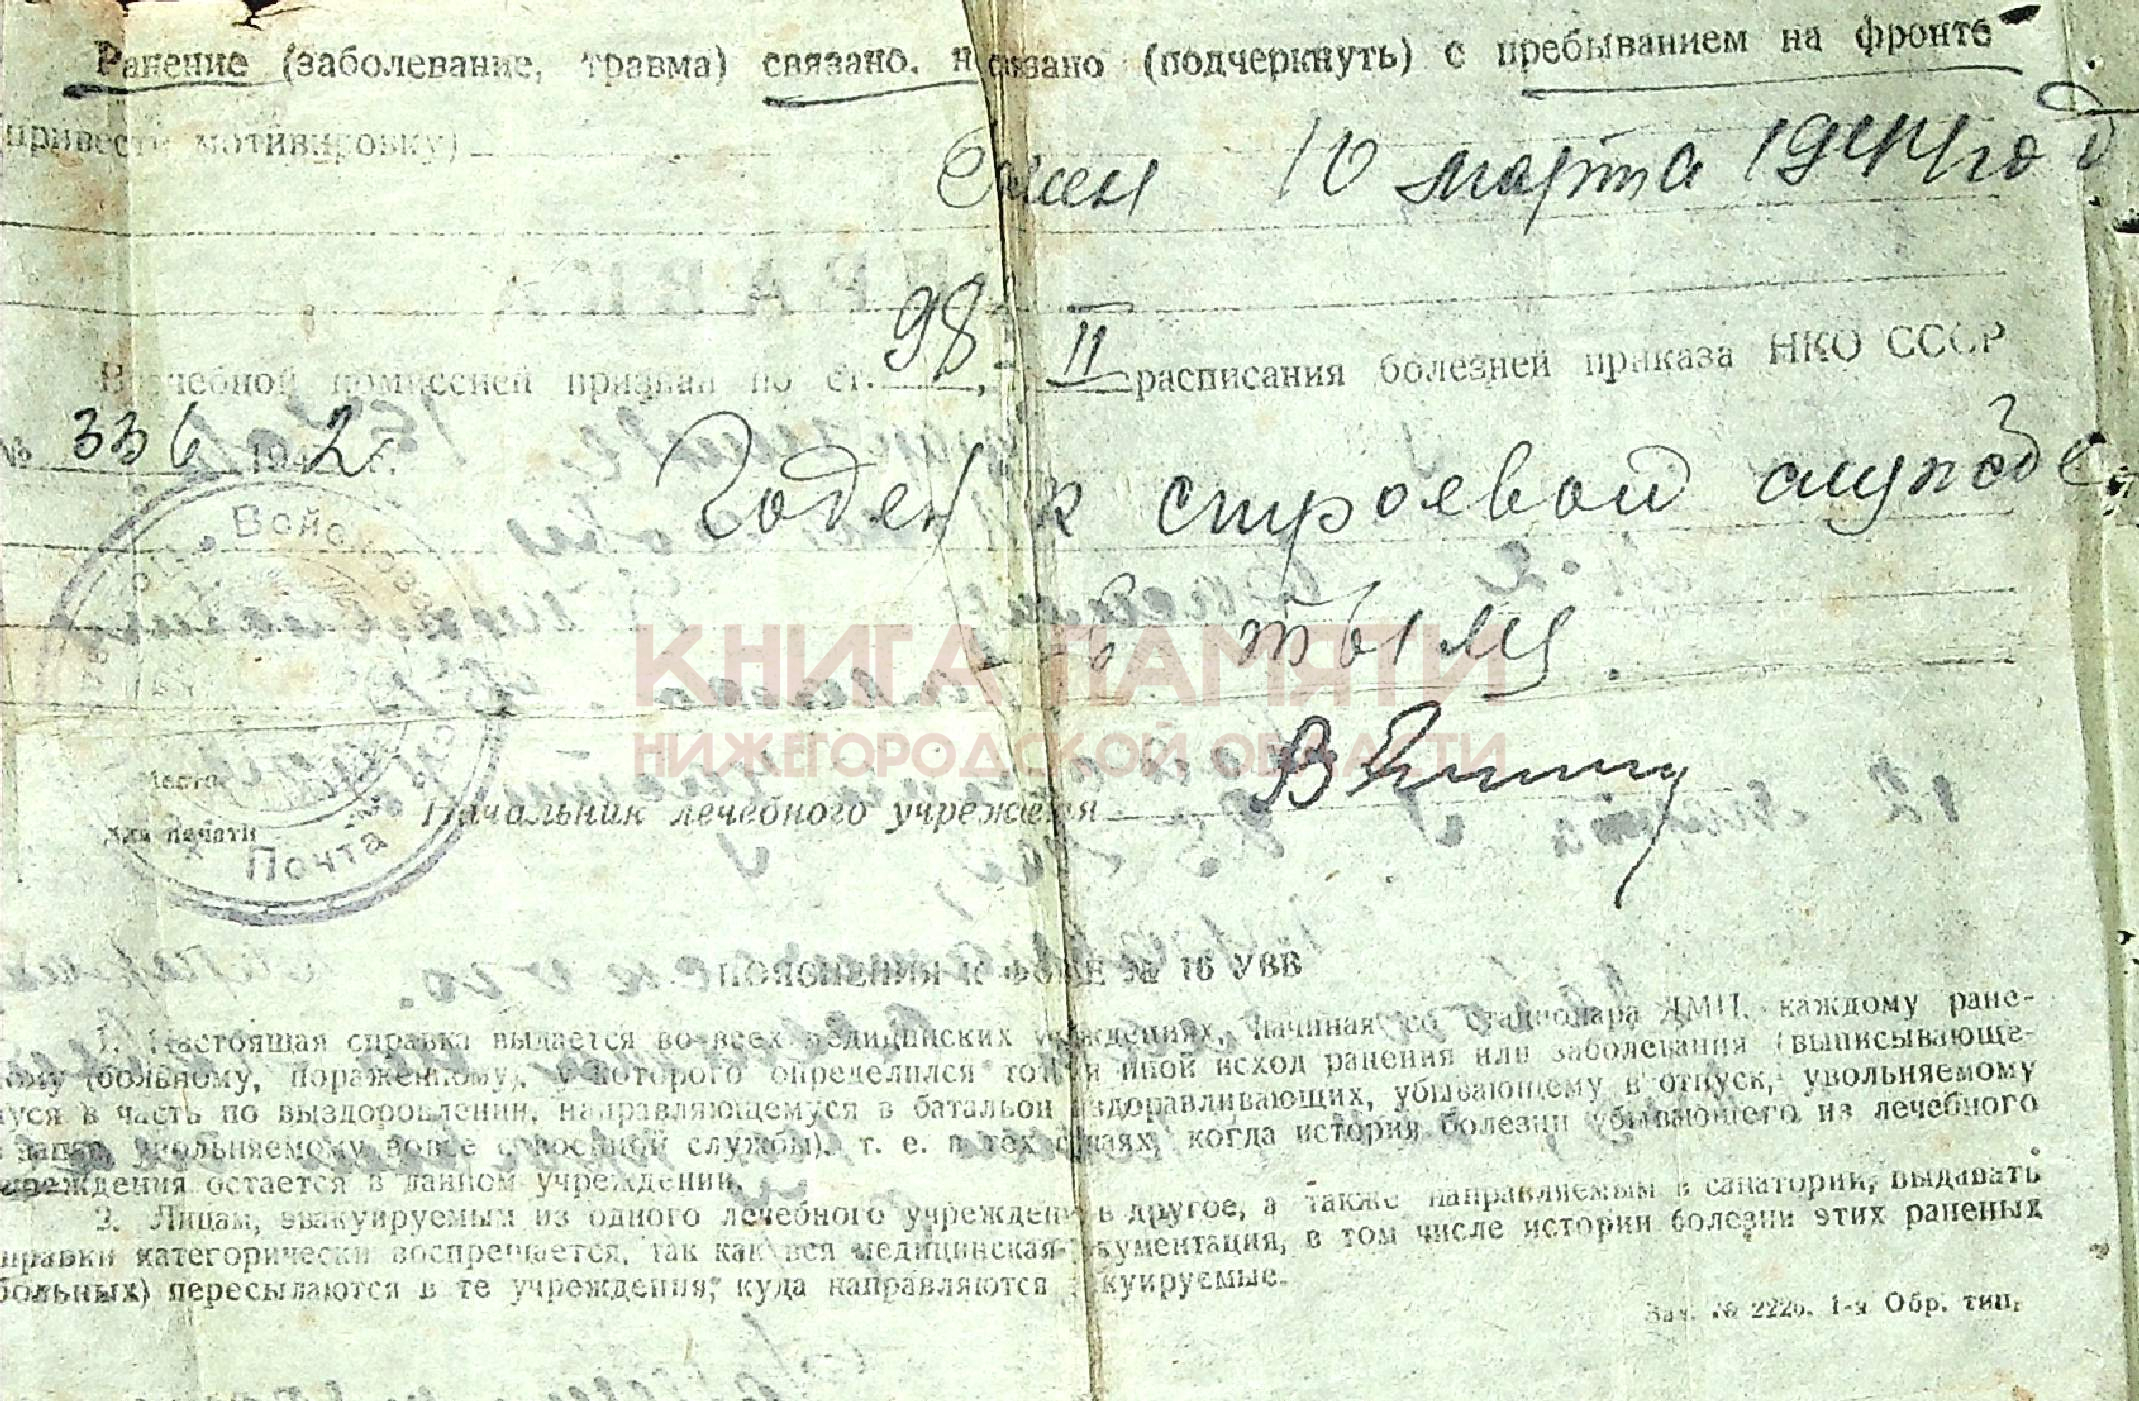 Ранение (заболевание, травма) связано, не связано (подчеркнуть) с пребыванием на фронте
привести мотивировку)
10 марта 1944 год
Врачебной комиссией признан по ст. 98, II расписания болезней приказа НКО СССР
№ 336 1942 г. Годен к строевой службе
в тылу.
Войсковая
Почта
Место
для печати
Начальник лечебного учреждения
КНИГА ПАМЯТИ
НИЖЕГОРОДСКОЙ ОБЛАСТИ
ПОЯСНЕНИЯ К ФОРМЕ № 16 УВВ
1. Настоящая справка выдается во всех медицинских учреждениях, начиная со стационара ДМП, каждому ране-
ному (больному, пораженному), у которого определился тот или иной исход ранения или заболевания (выписывающе-
муся в часть по выздоровлении, направляющемуся в батальон выздоравливающих, убывающему в отпуск, увольняемому
в запас, увольняемому вовсе с военной службы), т. е. в тех случаях, когда история болезни убывающего из лечебного
учреждения остается в данном учреждении.
2. Лицам, эвакуируемым из одного лечебного учреждения в другое, а также направляемым в санатории, выдавать
справки категорически воспрещается, так как вся медицинская документация, в том числе истории болезни этих раненых
(больных) пересылаются в те учреждения, куда направляются эвакуируемые.
Зак. № 2226. 1-я Обр. тип.